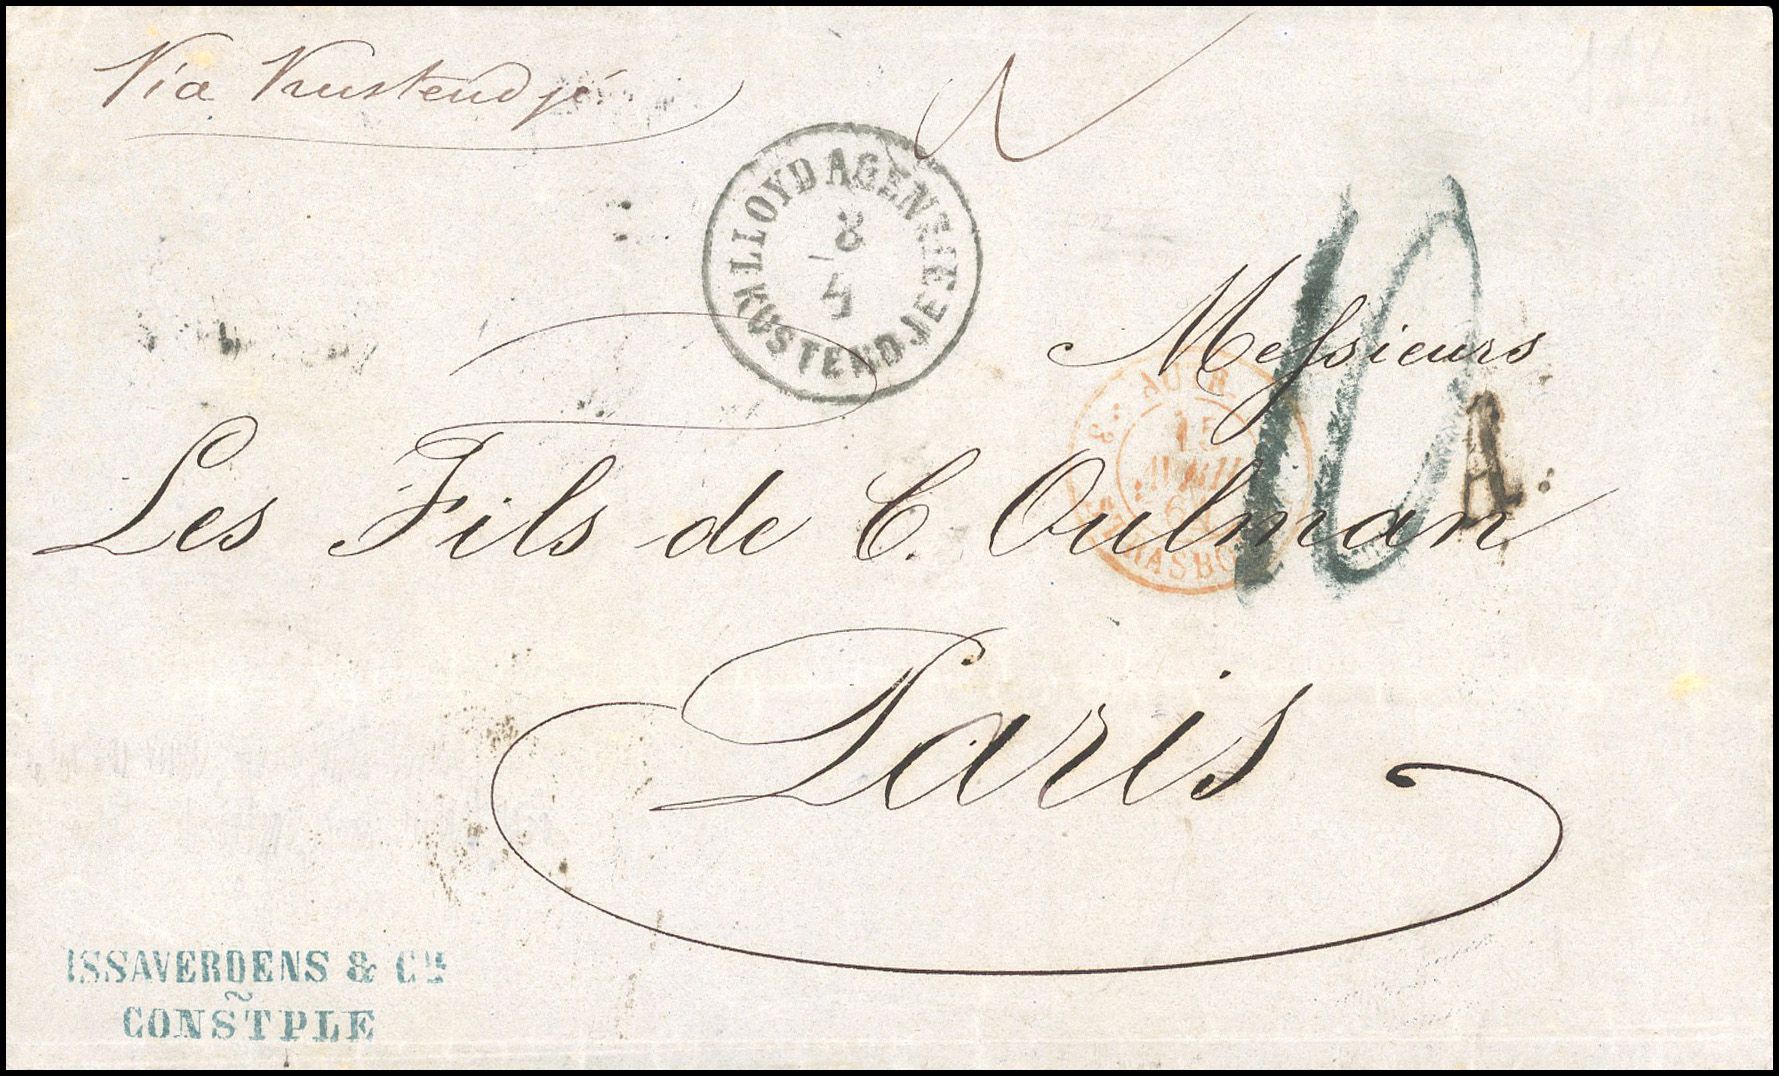 Via Kustendjé
LLOYD AGENZIE
8
4
KUSTENDJE
Messieurs
AUTR
3
15
AVRIL
STRASBG
10
A.
Les Fils de C. Oulman
Paris
ISSAVERDENS & Cie
CONSTPLE